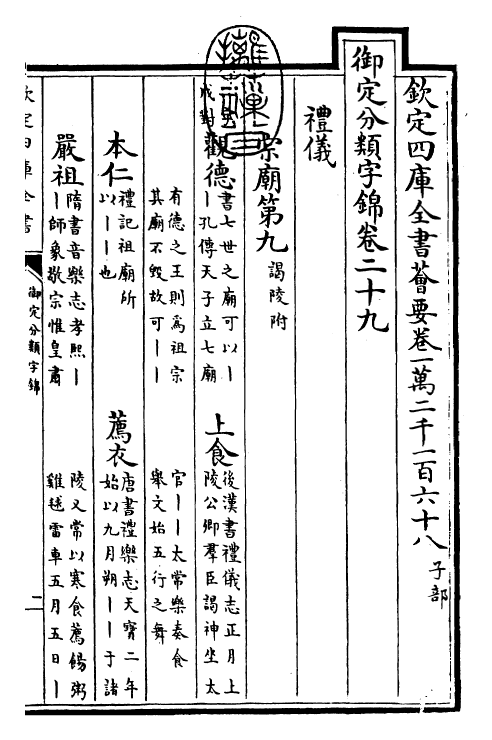 欽定四庫全書薈要卷一萬二千一百六十八 子部
御定分類字錦卷二十九
禮儀
宗廟第九 謁陵附
成對
觀德 書七世之廟可以丨
丨孔傳天子立七廟
有德之王則為祖宗
其廟不毀故可丨丨
本仁 禮記祖廟所
以丨丨也
嚴祖 隋書音樂志孝熙丨
丨師象敬宗惟皇肅
上食 後漢書禮儀志正月上
陵公卿羣臣謁神坐太
官丨丨太常樂奏食
舉文始五行之舞
薦衣 唐書禮樂志天寶二年
始以九月朔丨丨于諸
陵又常以寒食薦餳粥
雞毬雷車五月五日丨
欽定四庫全書
御定分類字錦
二